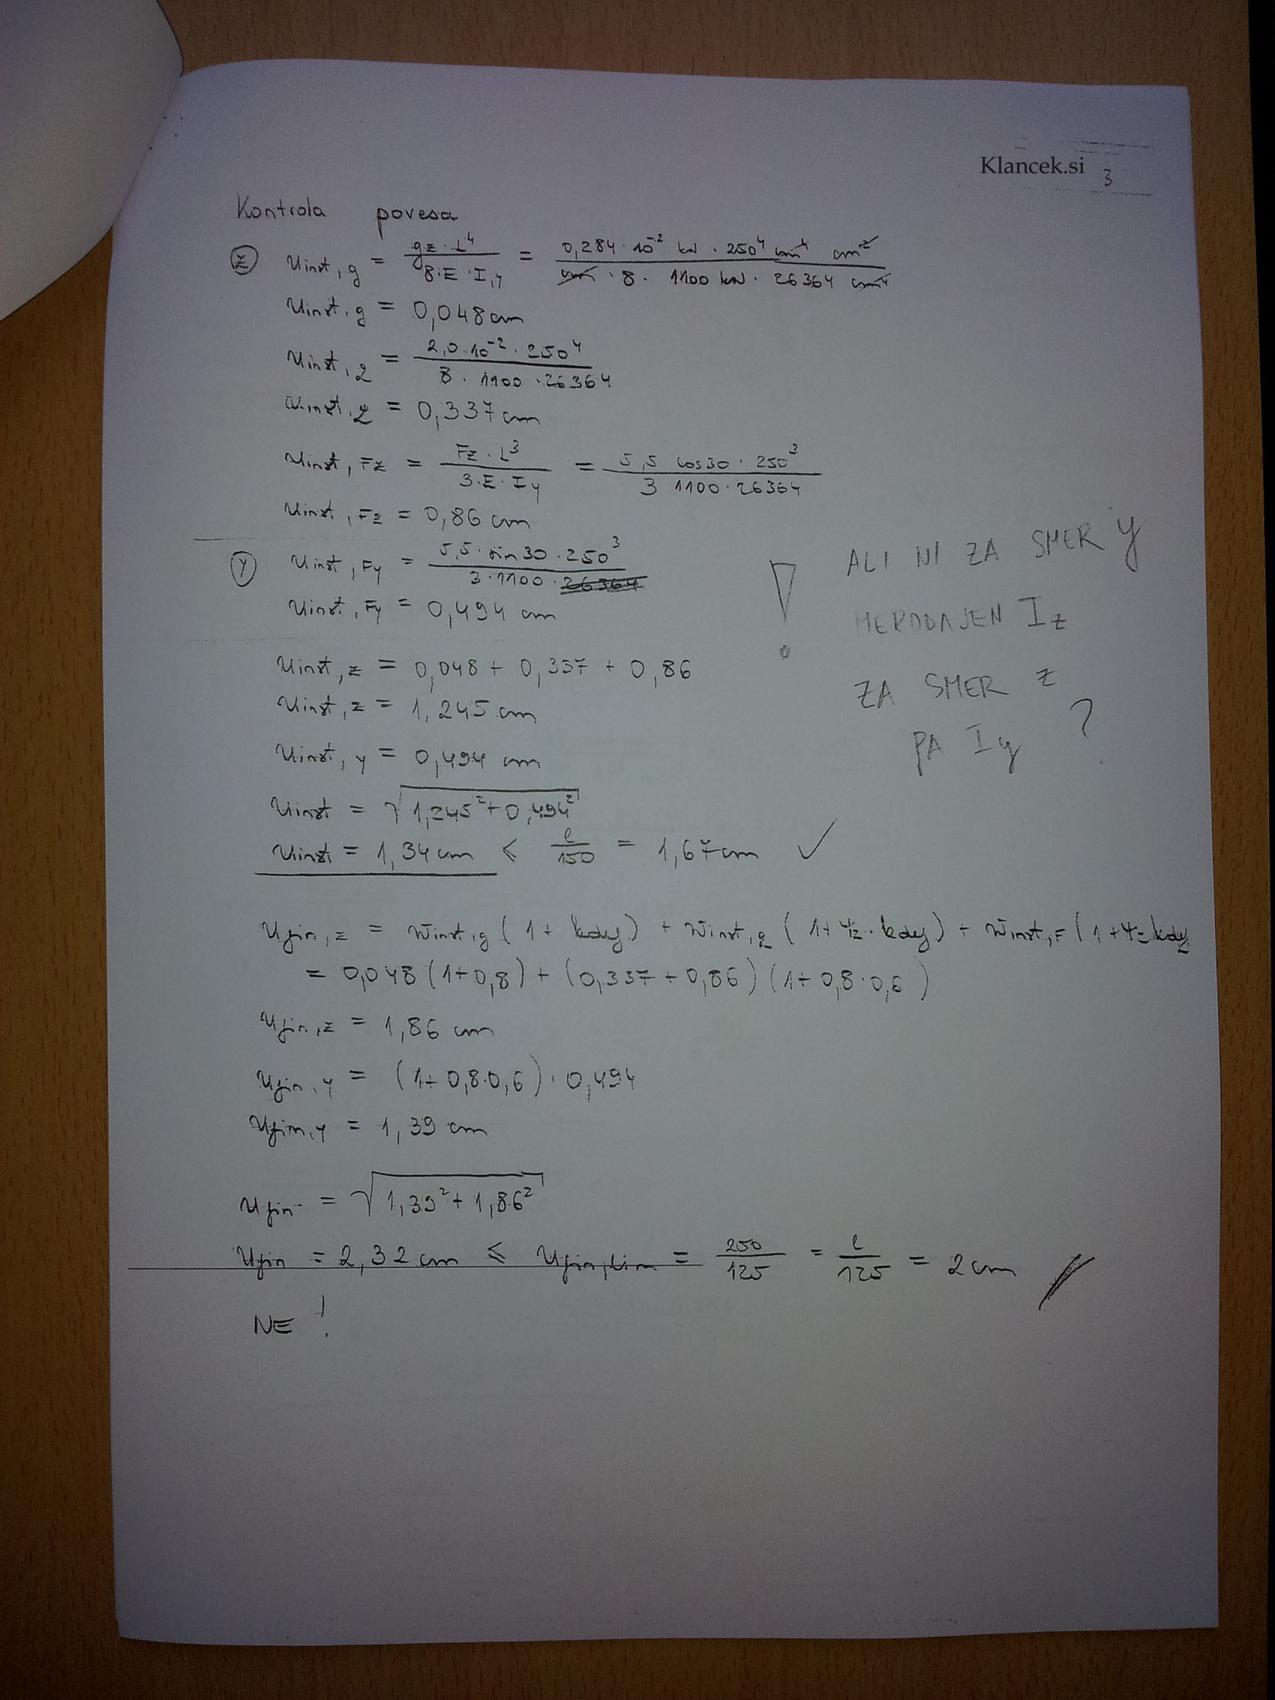 Klancek.si 3
Kontrola povesa
Z u inst,g = gz · L⁴ / 8·E·I,y = 0,284 · 10⁻² kN · 250⁴ cm⁴ cm² / cm · 8 · 1100 kN · 26364 cm⁴
u inst,g = 0,048 cm
u inst,q = 2,0·10⁻² · 250⁴ / 8 · 1100 · 26364
u inst,q = 0,337 cm
u inst,Fz = Fz · L³ / 3·E·Iy = 5,5 cos30 · 250³ / 3 1100·26364
u inst,Fz = 0,86 cm
Y u inst,Fy = 5,5 · sin30 · 250³ / 3·1100·26364
u inst,Fy = 0,494 cm
! ALI NI ZA SMER y
MERODAJEN Iz
ZA SMER z
PA Iy ?
u inst,z = 0,048 + 0,337 + 0,86
u inst,z = 1,245 cm
u inst,y = 0,494 cm
u inst = √1,245² + 0,494²
u inst = 1,34 cm ≤ l/150 = 1,67 cm ✓
u fin,z = w inst,g (1 + kdef) + w inst,q (1 + ψ2 · kdef) + w inst,F (1 + ψ2 kdef
= 0,048 (1+0,8) + (0,337 + 0,86) (1+0,8·0,6)
u fin,z = 1,86 cm
u fin,y = (1+0,8·0,6) · 0,494
u fin,y = 1,39 cm
u fin = √1,39² + 1,86²
u fin = 2,32 cm ≤ u fin,lim = 250/125 = l/125 = 2 cm
NE !